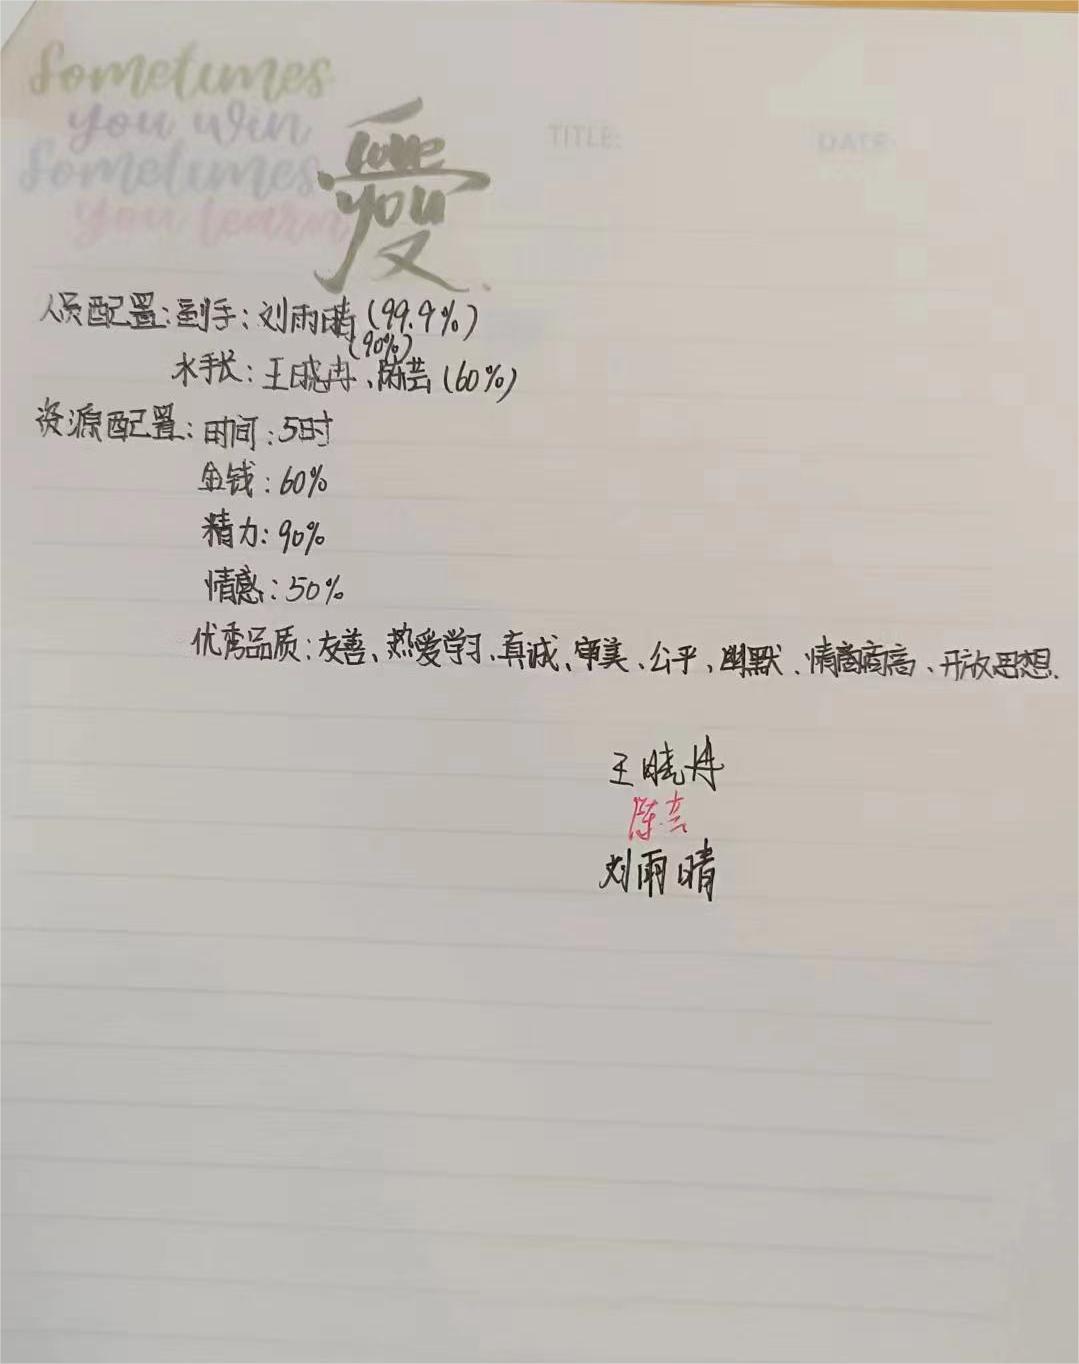 Sometimes
you win
Sometimes
you learn
love
you
爱
TITLE:
DATE:
人员配置：副手：刘雨晴（99.9%）
（90%）
水手长：王晓冉、陈芸（60%）
资源配置：时间：5时
金钱：60%
精力：90%
情感：50%
优秀品质：友善、热爱学习、真诚、审美、公平、幽默、情商高、开放思想.
王晓冉
陈芸
刘雨晴